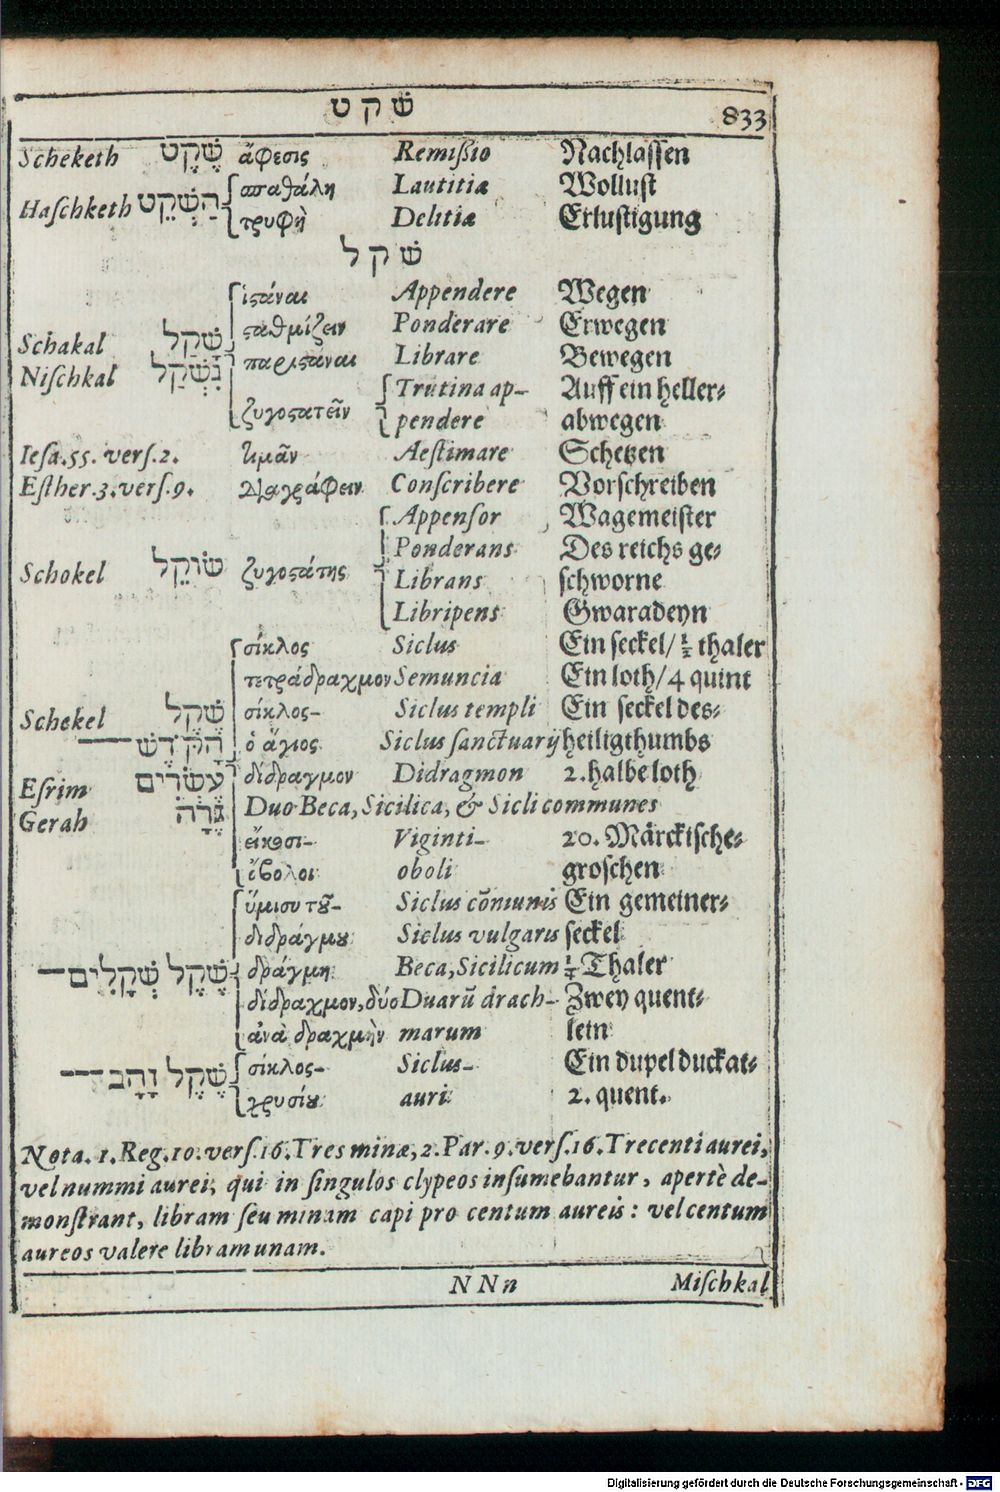 שׁ ק ט 833
Scheketh שֶׁקֶט ἄφεσις Remißio Nachlassen
σπαθάλη Lautitiæ Wollust
Haſchketh הַשְׁקֵט τρυφὴ Delitiæ Erlustigung
שׁ ק ל
ἱστάναι Appendere Wegen
σταθμίζειν Ponderare Erwegen
Schakal שָׁקַל παριστάναι Librare Bewegen
Niſchkal נִשְׁקַל Trutina ap- Auff ein heller⸗
ζυγοστατεῖν pendere abwegen
Ieſa.55. verſ.2. τιμᾶν Aeſtimare Schetzen
Eſther.3.verſ.9. διαγράφειν Conſcribere Vorschreiben
Appenſor Wagemeister
Ponderans Des reichs ge⸗
Schokel שׁוֹקֵל ζυγοστάτης Librans schworne
Libripens Gwaradeyn
σίκλος Siclus Ein seckel/ ½ thaler
τετράδραχμον Semuncia Ein loth/ 4 quint
Schekel שֶׁקֶל σίκλος- Siclus templi Ein seckel des⸗
הַקֹּדֶשׁ ὁ ἅγιος Siclus ſanctuarij heiligthumbs
Eſrim עֶשְׂרִים δίδραγμον Didragmon 2. halbe loth
Gerah גֵּרָה Duo Beca, Sicilica, & Sicli communes
εἴκοσι- Viginti- 20. Märckische⸗
ὄβολοι oboli groschen
ὕμισυ τοῦ- Siclus cõmunis Ein gemeiner⸗
διδράγμου Siclus vulgaris seckel
שֶׁקֶל שְׁקָלִים δράγμη Beca, Sicilicum ¼ Thaler
δίδραχμον, δύο Duarũ drach- Zwey quent⸗
ἀνὰ δραχμὴν marum lein
σίκλος- Siclus- Ein dupel duckat⸗
שֶׁקֶל זָהָב χρυσίου auri 2. quent.
Nota. 1. Reg. 10. verſ. 16. Tres minæ, 2. Par. 9. verſ. 16. Trecenti aurei,
vel nummi aurei, qui in ſingulos clypeos inſumebantur, apertè de-
monſtrant, libram ſeu minam capi pro centum aureis: vel centum
aureos valere libram unam.
NNn Miſchkal
Digitalisierung gefördert durch die Deutsche Forschungsgemeinschaft - DFG